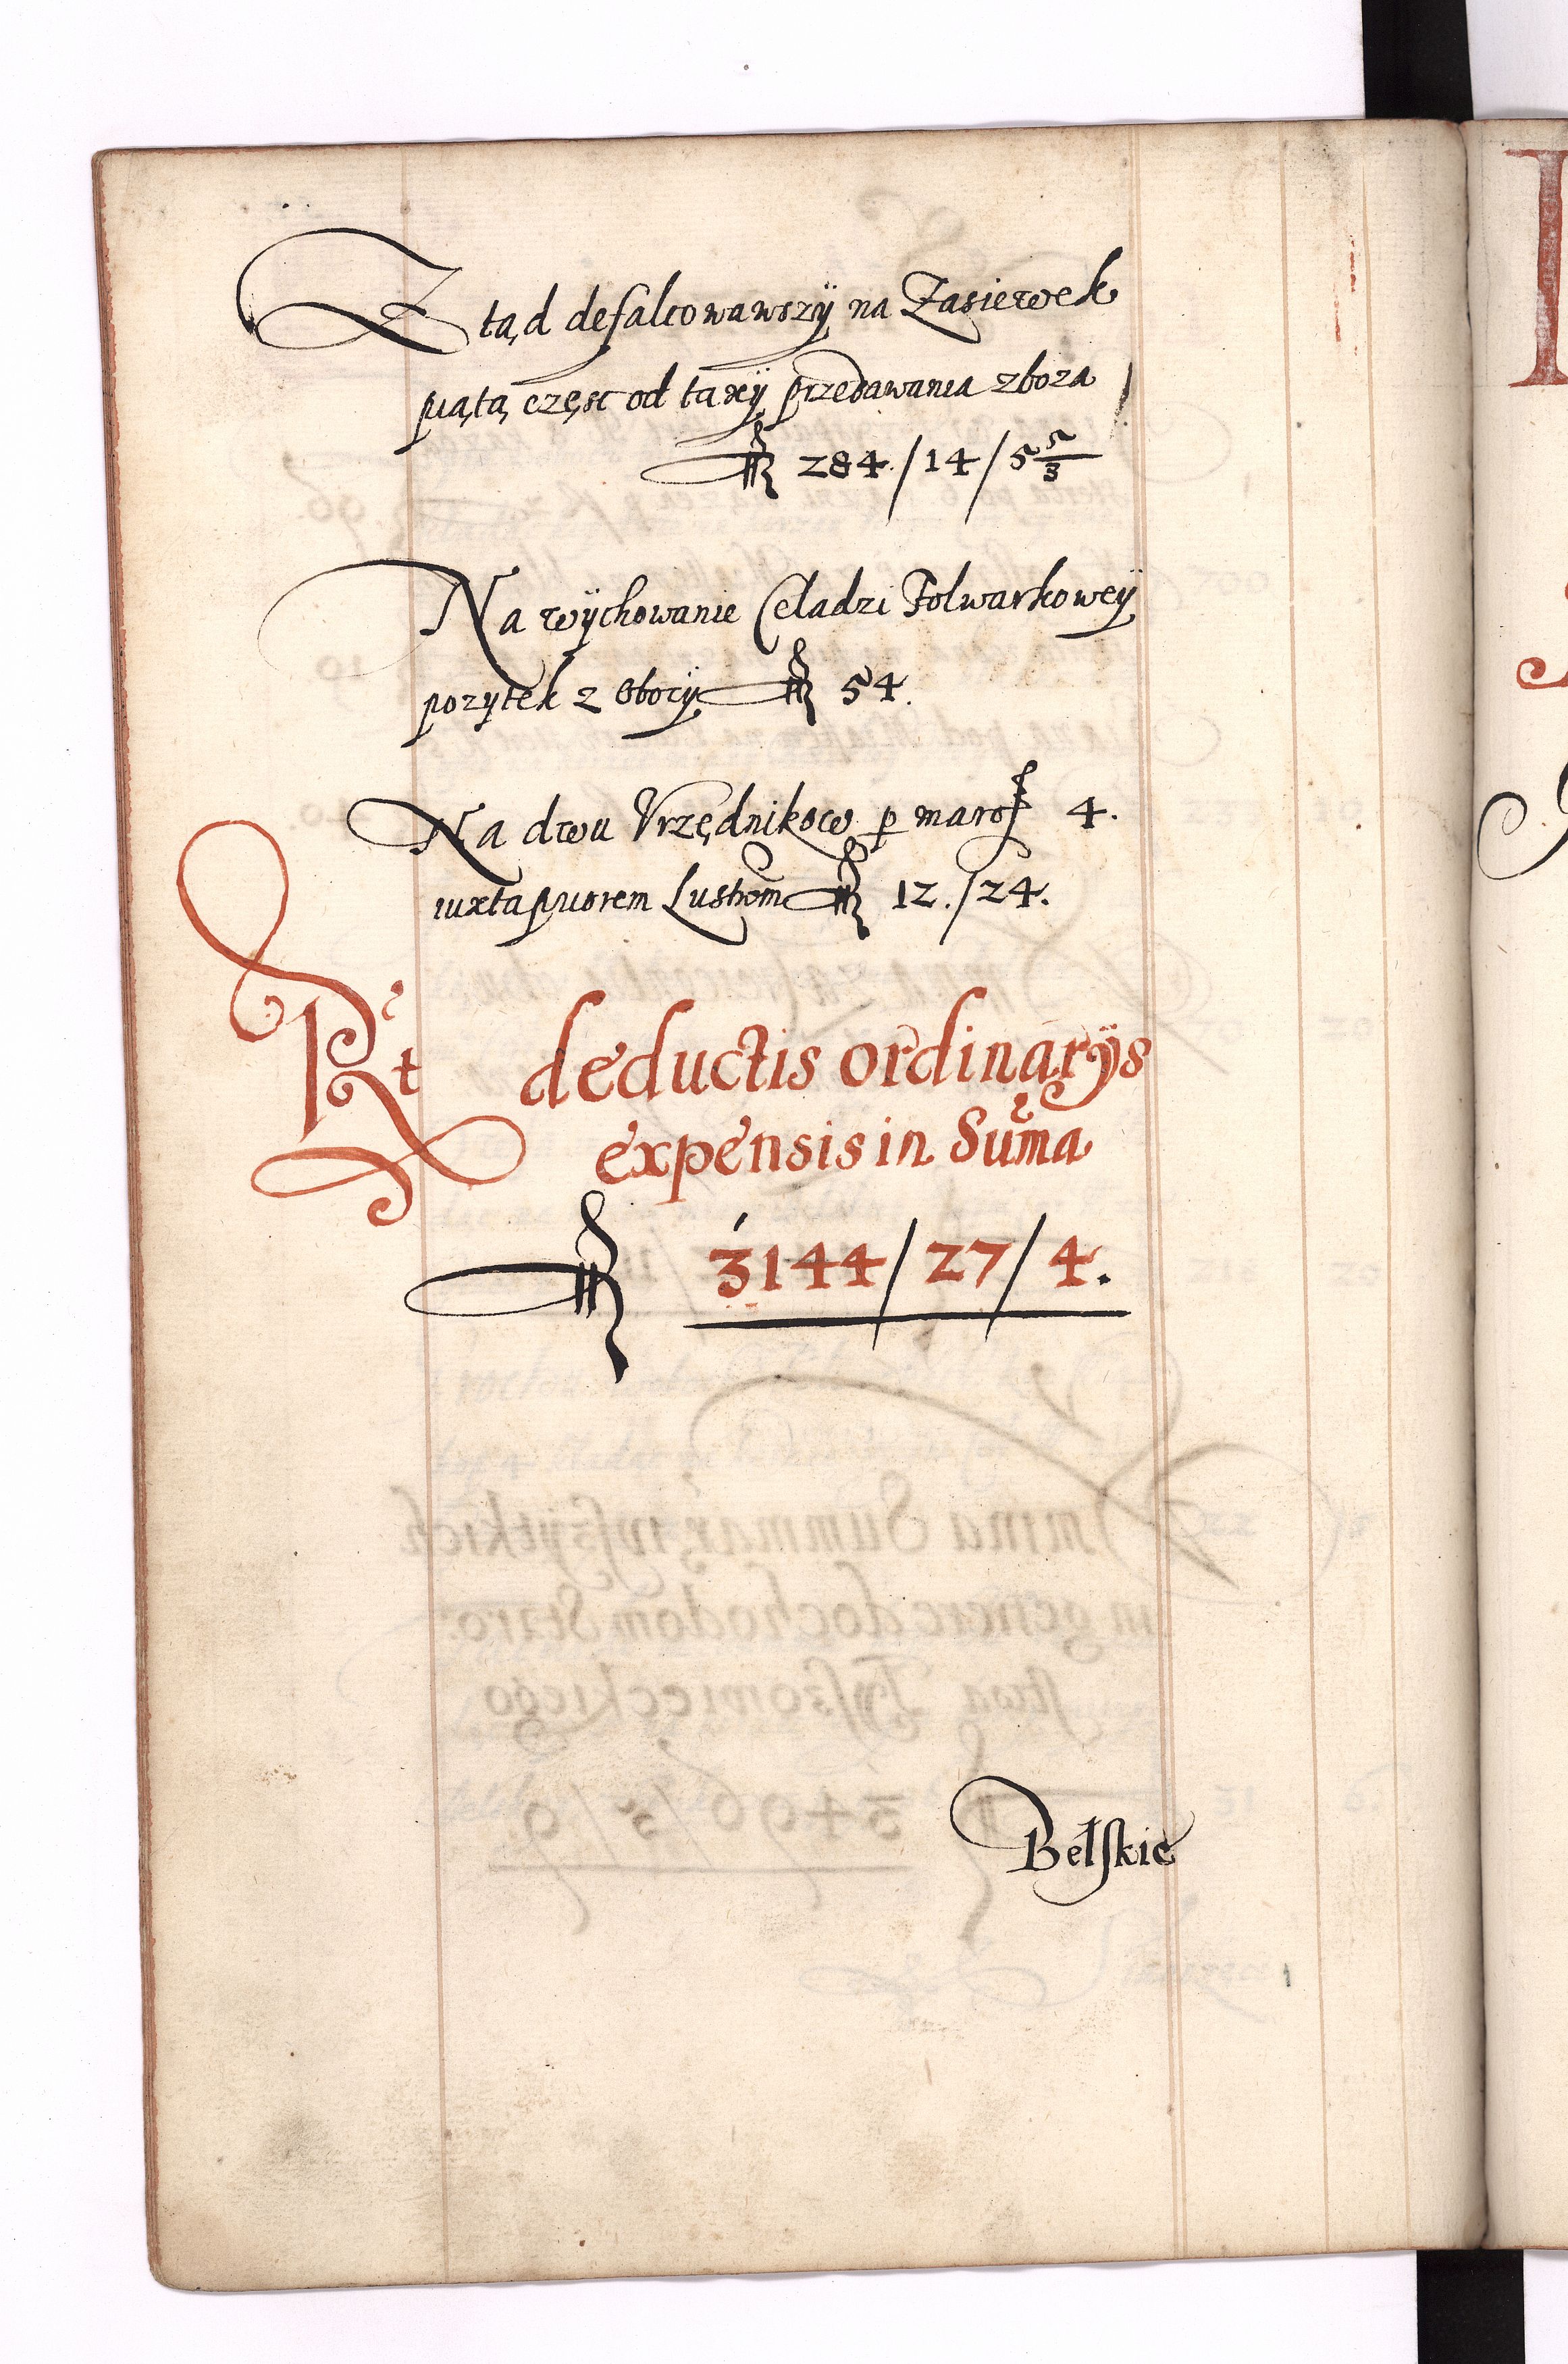 Ztąd defalcowawszÿ na Zasiewek
piątą częsc od taxÿ przedawania zboza
fl 284/14/5 5/3
Na wÿchowanie Celadzi Folwarkoweÿ
pozÿtek z oborÿ fl 54.
Na dwu Vrzędnikow p marc 4.
iuxta priorem Lustrom fl 12./24.
Rt deductis ordinarÿs
expensis in Suma
fl 3144/27/4.
Bełskie